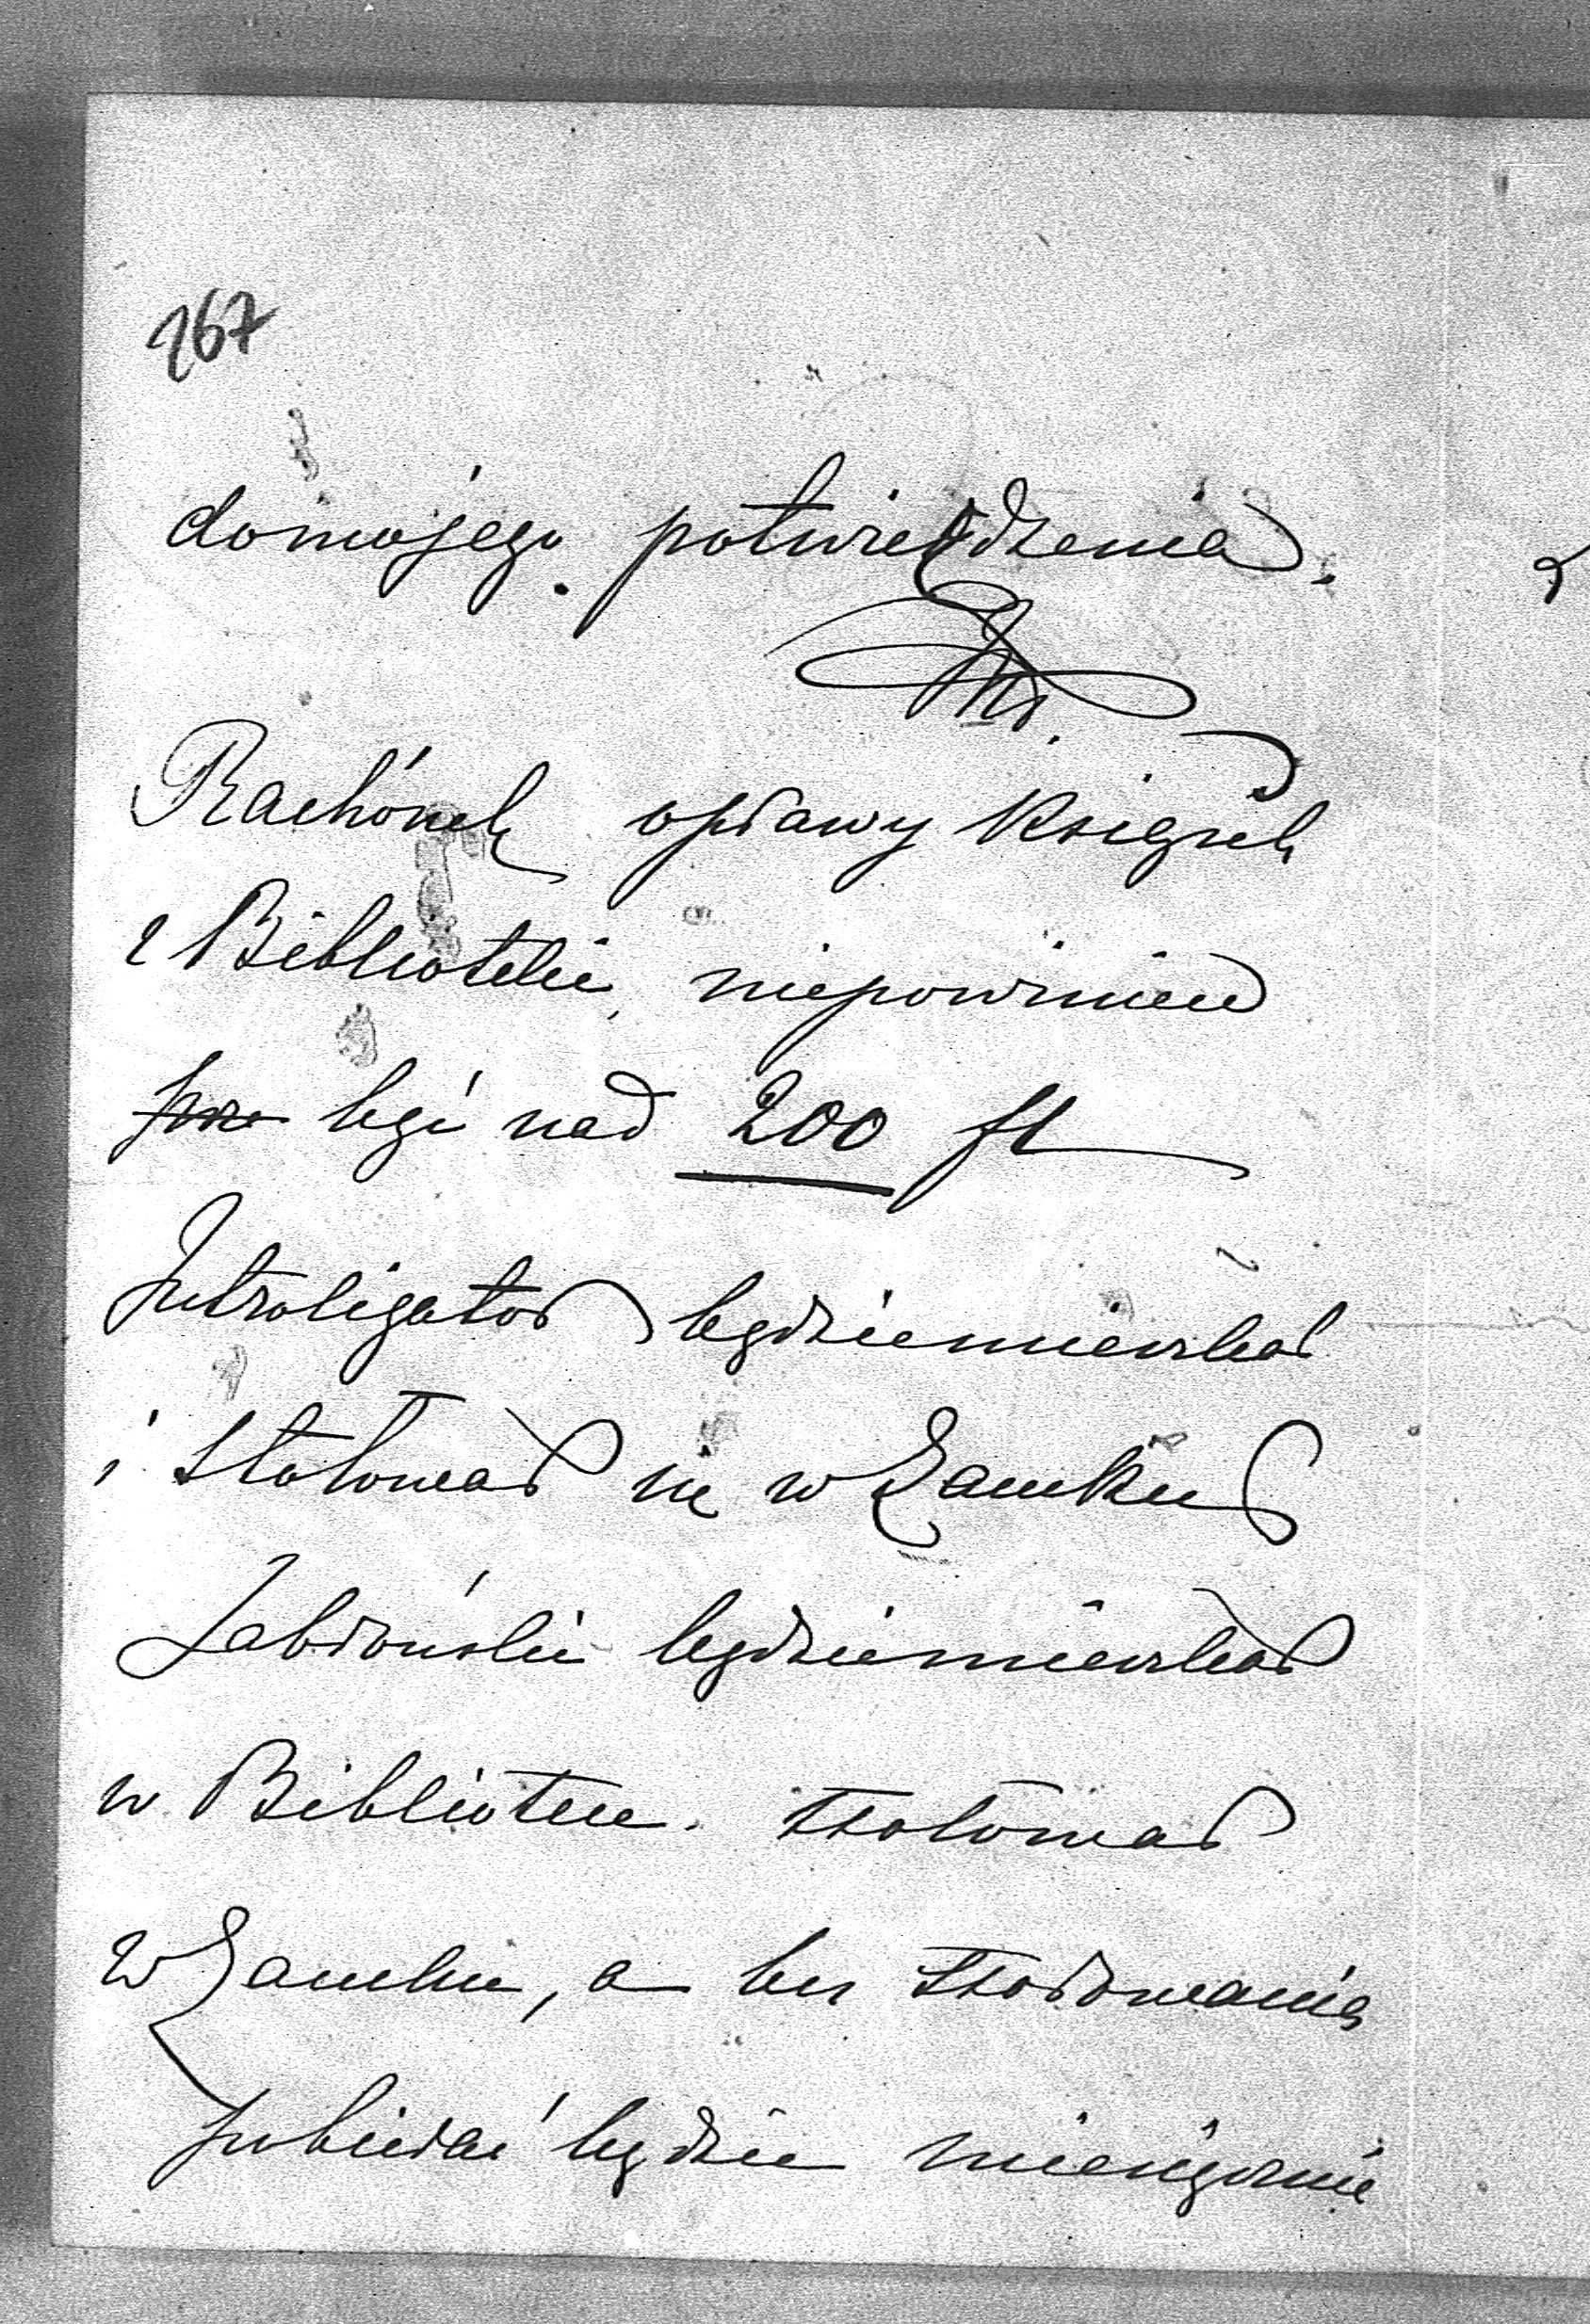 267
domojego potwierdzenia.
Rachónek oprawy Książek
z Biblioteki niepowinien
być nad 200 fl
Jntroligator będzie mieszkał
i stołował się w Zamku
Zabroński będzie mieszkał
w Bibliotece. stołował
w Zamku, a bez stołowania
pobierać będzie miesięcznie